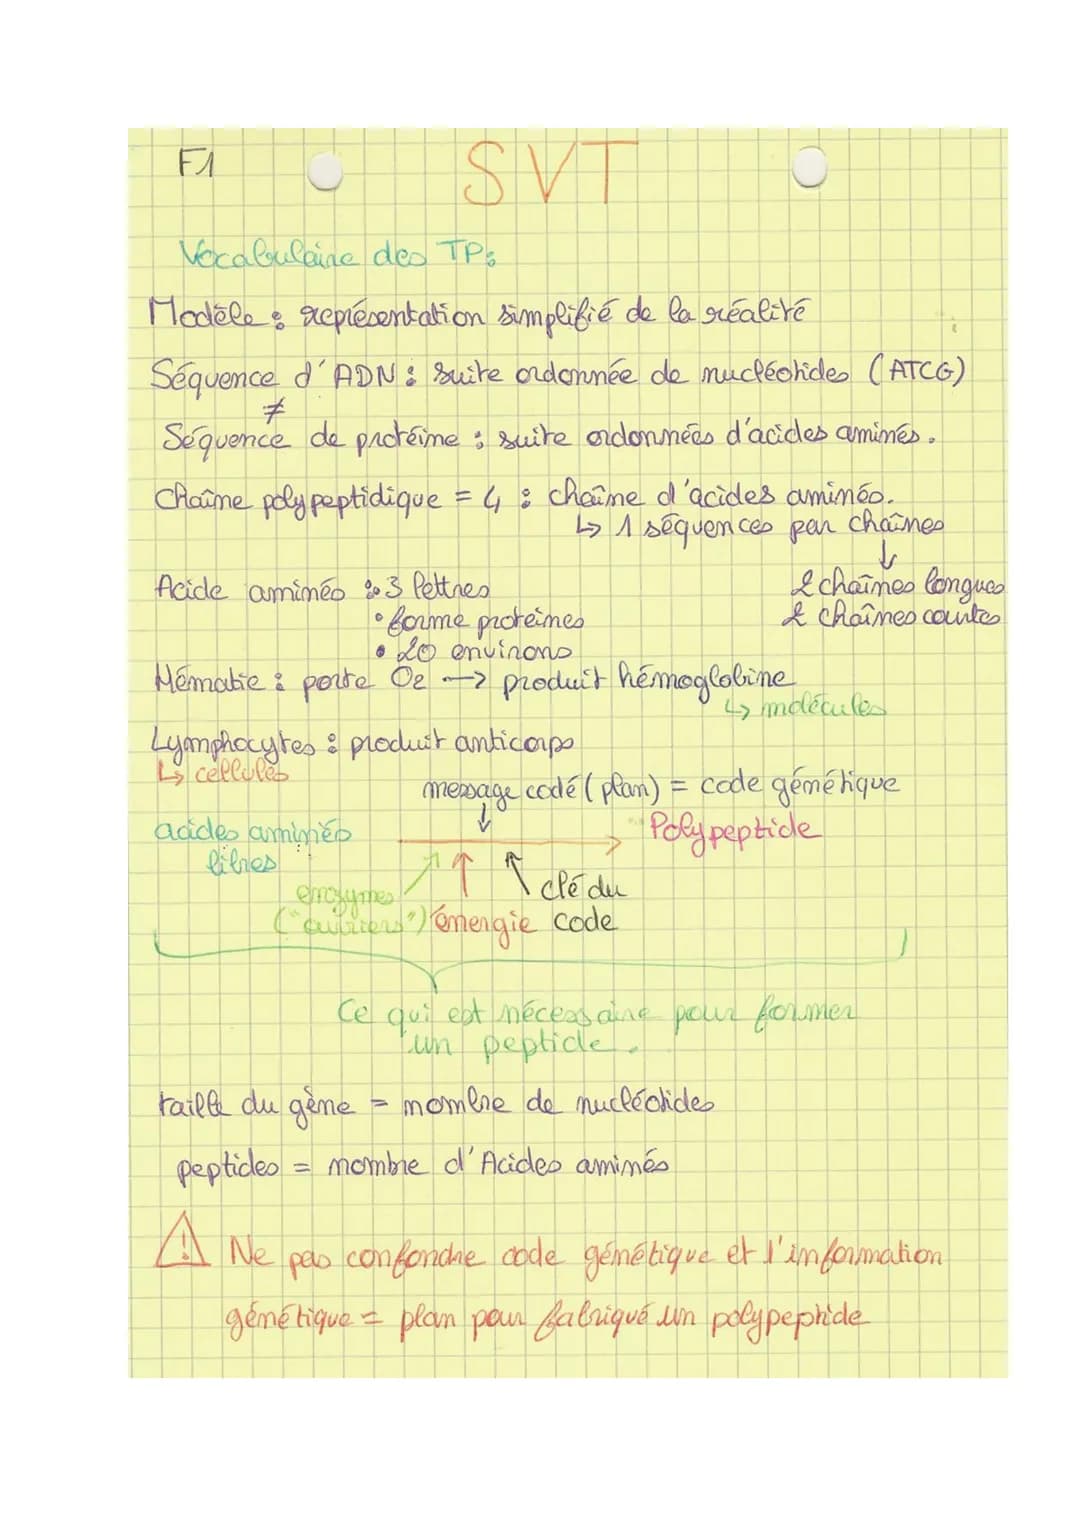 F1
SVT
Vocabulaire des TP:
Modèle : représentation simplifié de la réalité
Séquence d'ADN : suite ordonnée de nucléotides (ATCG)
≠
Séquence de protéine : suite ordonnées d'acides aminés.
Chaîne polypeptidique = 4 : chaîne d'acides aminés.
↳ 1 séquences par chaînes
↓
Acide aminés : • 3 lettres
2 chaînes longues
• forme protéines
2 chaînes courtes
• 20 environs
Hématie : porte O2 → produit hémoglobine
↳ molécules
Lymphocytes : produit anticorps
↳ cellules
message codé (plan) = code génétique
acides aminés libres
Polypeptide
enzymes ("ouvriers")
énergie
clé du code
Ce qui est nécessaire pour former
un peptide.
taille du gène = nombre de nucléotides
peptides = nombre d'Acides aminés
⚠ Ne pas confondre code génétique et l'information
génétique = plan pour fabriqué un polypeptide